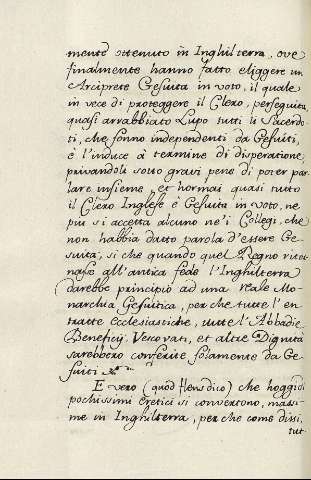 mente ottenuto in Inghilterra, ove
finalmente hanno fatto eliggere un
Arciprete Gesuita in voto, il quale
in vece di proteggere il Clero, perseguita
quasi arrabbiato Lupo tutti li Sacerdo
ti, che sonno independenti da Gesuiti,
e l'induce à termine di disperatione,
privandoli sotto gravi pene di poter par
lare insieme, et hormai quasi tutto
il Clero Inglese è Gesuita in voto, ne
più si accetta alcuno ne'i Collegi, che
non habbia datto parola d'essere Ge
suita, si che quando quel Regno ritor
nasse all'antica fede l'Inghilterra
darebbe principio ad una reale Mo
narchia Gesuitica, per che tutte l'en
tratte ecclesiastiche, tutte l'Abbadie
Beneficij Vescovati, et altre Dignità
sarebbero conferite solamente da Ge
suiti
E vero (quod flens dico) che hoggidi
pochissimi eretici si convertono, massi
me in Inghilterra, per che come dissi,
tut